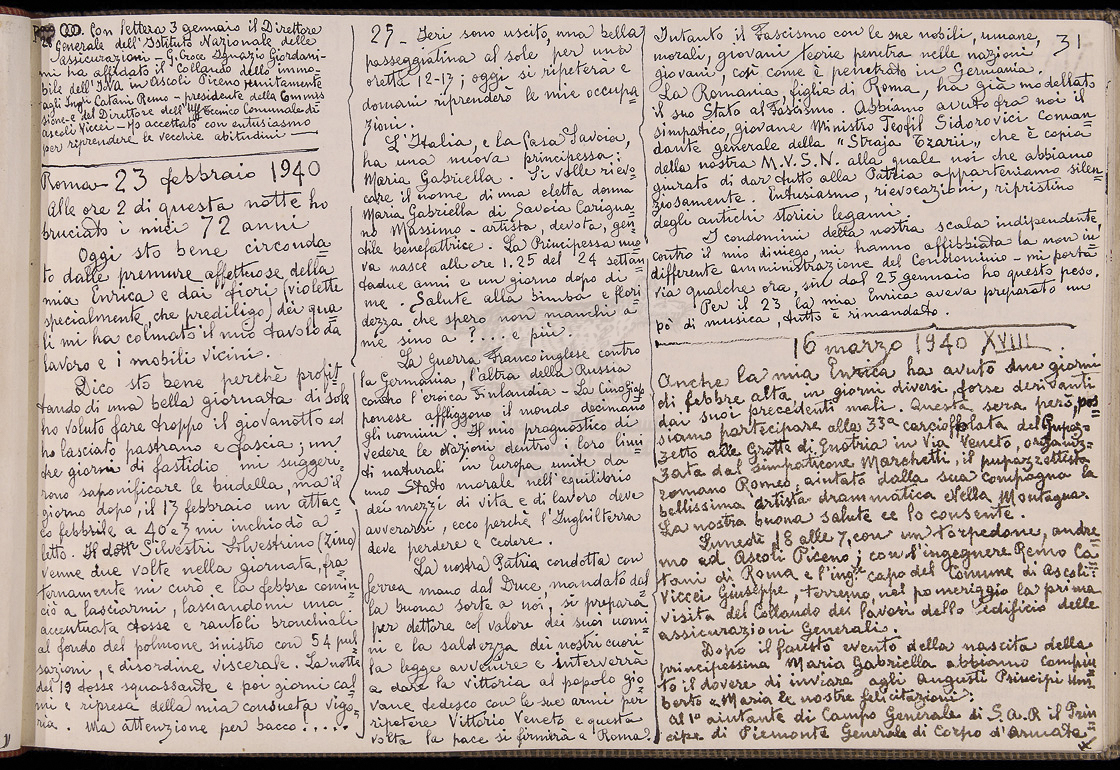 Con lettera 3 gennaio il Direttore
Generale dell'Istituto Nazionale delle
Assicurazioni - G. Croce Ignazio Giordani-
mi ha affidato il Collando dello immo=
bile dell'INA in Ascoli Piceno unitamente
agli Ingri Catani Remo - presidente della Commis
sione - e del Direttore dell'Uff Tecnico Comunale di
Ascoli Viccei - Ho accettato con entusiasmo
per riprendere le vecchie abitudini -
Roma - 23 febbraio 1940
Alle ore 2 di questa notte ho
bruciato i miei 72 anni
Oggi sto bene circonda=
to dalle premure affettuose della
mia Enrica e dai fiori (violette
specialmente che prediligo) dei qua=
li mi ha colmato il mio tavolo da
lavoro e i mobili vicini.
Dico sto bene perchè profit=
tando di una bella giornata di sole
ho voluto fare troppo il giovanotto ed
ho lasciato pastrano e fascia; un
che giorni di fastidio mi suggeri=
rono saponificare le budella, ma il
giorno dopo, il 13 febbraio un attac=
co febbrile a 40 e 3 mi inchiodò a
letto. Il dott Silvestri Silvestrino (Zino)
venne due volte nella giornata, fra=
ternamente mi curò e la febbre comin=
ciò a lasciarmi, lasciandomi una
accentuata tosse e rantoli bronchiali
al fondo del polmone sinistro con 54 pul=
sazioni, e disordine viscerale. La notte
del 19 tosse squassante e poi giorni cal=
mi e ripresa della mia consueta vigo=
ria. Ma attenzione per bacco!....
25 - Ieri sono uscito, una bella
passeggiatina al sole per una
oretta 12-13; oggi si ripeterà e
domani riprenderò le mie occupa
zioni.
L'Italia, e la Casa Savoia,
ha una nuova principessa:
Maria Gabriella. Si volle riev=
care il nome di una eletta donna
Maria Gabriella di Savoia Carigna=
no Massimo - artista, devota, gen=
tile benefattrice. La Principessa nuo=
va nasce alle ore 1.25 del '24 settan=
tadue anni e un giorno dopo di
me. Salute alla bimba e flori=
dezza che spero non manchi a
me sino a ?... e più.
La Guerra Franco inglese contro
la Germania, l'altra della Russia
contro l'eroica Finlandia - La cino giap=
ponese affliggono il mondo decimano
gli uomini. Il mio prognostico di
vedere le Nazioni dentro i loro limi=
ti naturali in Europa unite da
uno Stato morale nell'equilibrio
dei mezzi di vita e di lavoro deve
avverarsi, ecco perchè l'Inghilterra
deve perdere e cedere.
La nostra Patria condotta con
ferrea mano dal Duce, mandato dal=
la buona sorte a noi, si prepara
per dettare col valore dei suoi uomi=
ni e la saldezza dei nostri cuori
la legge avvenire e interverrà
a dare la vittoria al popolo gio=
vane tedesco con le sue armi per
ripetere Vittorio Veneto e questa
volta la pace si firmirà a Roma.
31
Intanto il Fascismo con le sue nobili, umane,
morali, giovani teorie penetra nelle nazioni
giovani, così come è penetrato in Germania.
La Romania, figlia di Roma, ha già modellato
il suo Stato al Fascismo. Abbiamo avuto fra noi il
simpatico, giovane Ministro Teofil Sidorovici Coman=
dante generale della "Straja Tzarii" che è copia
della nostra M.V.S.N. alla quale noi che abbiamo
giurato di dar tutto alla Patria apparteniamo silen=
ziosamente. Entusiasmo, rievocazioni, ripristino
degli antichi storici legami.
I condomini della nostra scala indipendente,
contro il mio diniego, mi hanno affibbiata la non in=
differente amministrazione del Condominio - mi porta
via qualche ora, sin dal 25 gennaio ho questo peso.
Per il 23 la mia Enrica aveva preparato un
pò di musica, tutto è rimandato.
16 marzo 1940 XVIII.
Anche la mia Enrica ha avuto due giorni
di febbre alta, in giorni diversi, forse derivanti
dai suoi precedenti mali. Questa sera però, pos=
siamo partecipare alla 33a carciofolata del Gupaz=
zetto alle Grotte di Enotria in Via Veneto, organiz=
zata dal simpaticone Marchetti, il pupazzettista
romano Romeo, aiutato dalla sua compagna la
bellissima artista drammatica Nella Montagna.
La nostra buona salute ce lo consente.
Lunedì 18 alle 7, con un torpedone, andre=
mo ad Ascoli Piceno; con l'ingegnere Remo Ca=
tani di Roma e l'ing. capo del Comune di Ascoli:
Viccei Giuseppe, terremo, nel pomeriggio la prima
visita del Collando dei lavori dello edificio delle
assicurazioni Generali.
Dopo il fausto evento della nascita della
principessina Maria Gabriella abbiamo compiu=
to il dovere di inviare agli Augusti Principi Um=
berto e Maria le nostre felicitazioni:
Al 1° aiutante di Campo Generale di S.A.R il Prin
cipe di Piemonte Generale di Corpo d'Armata